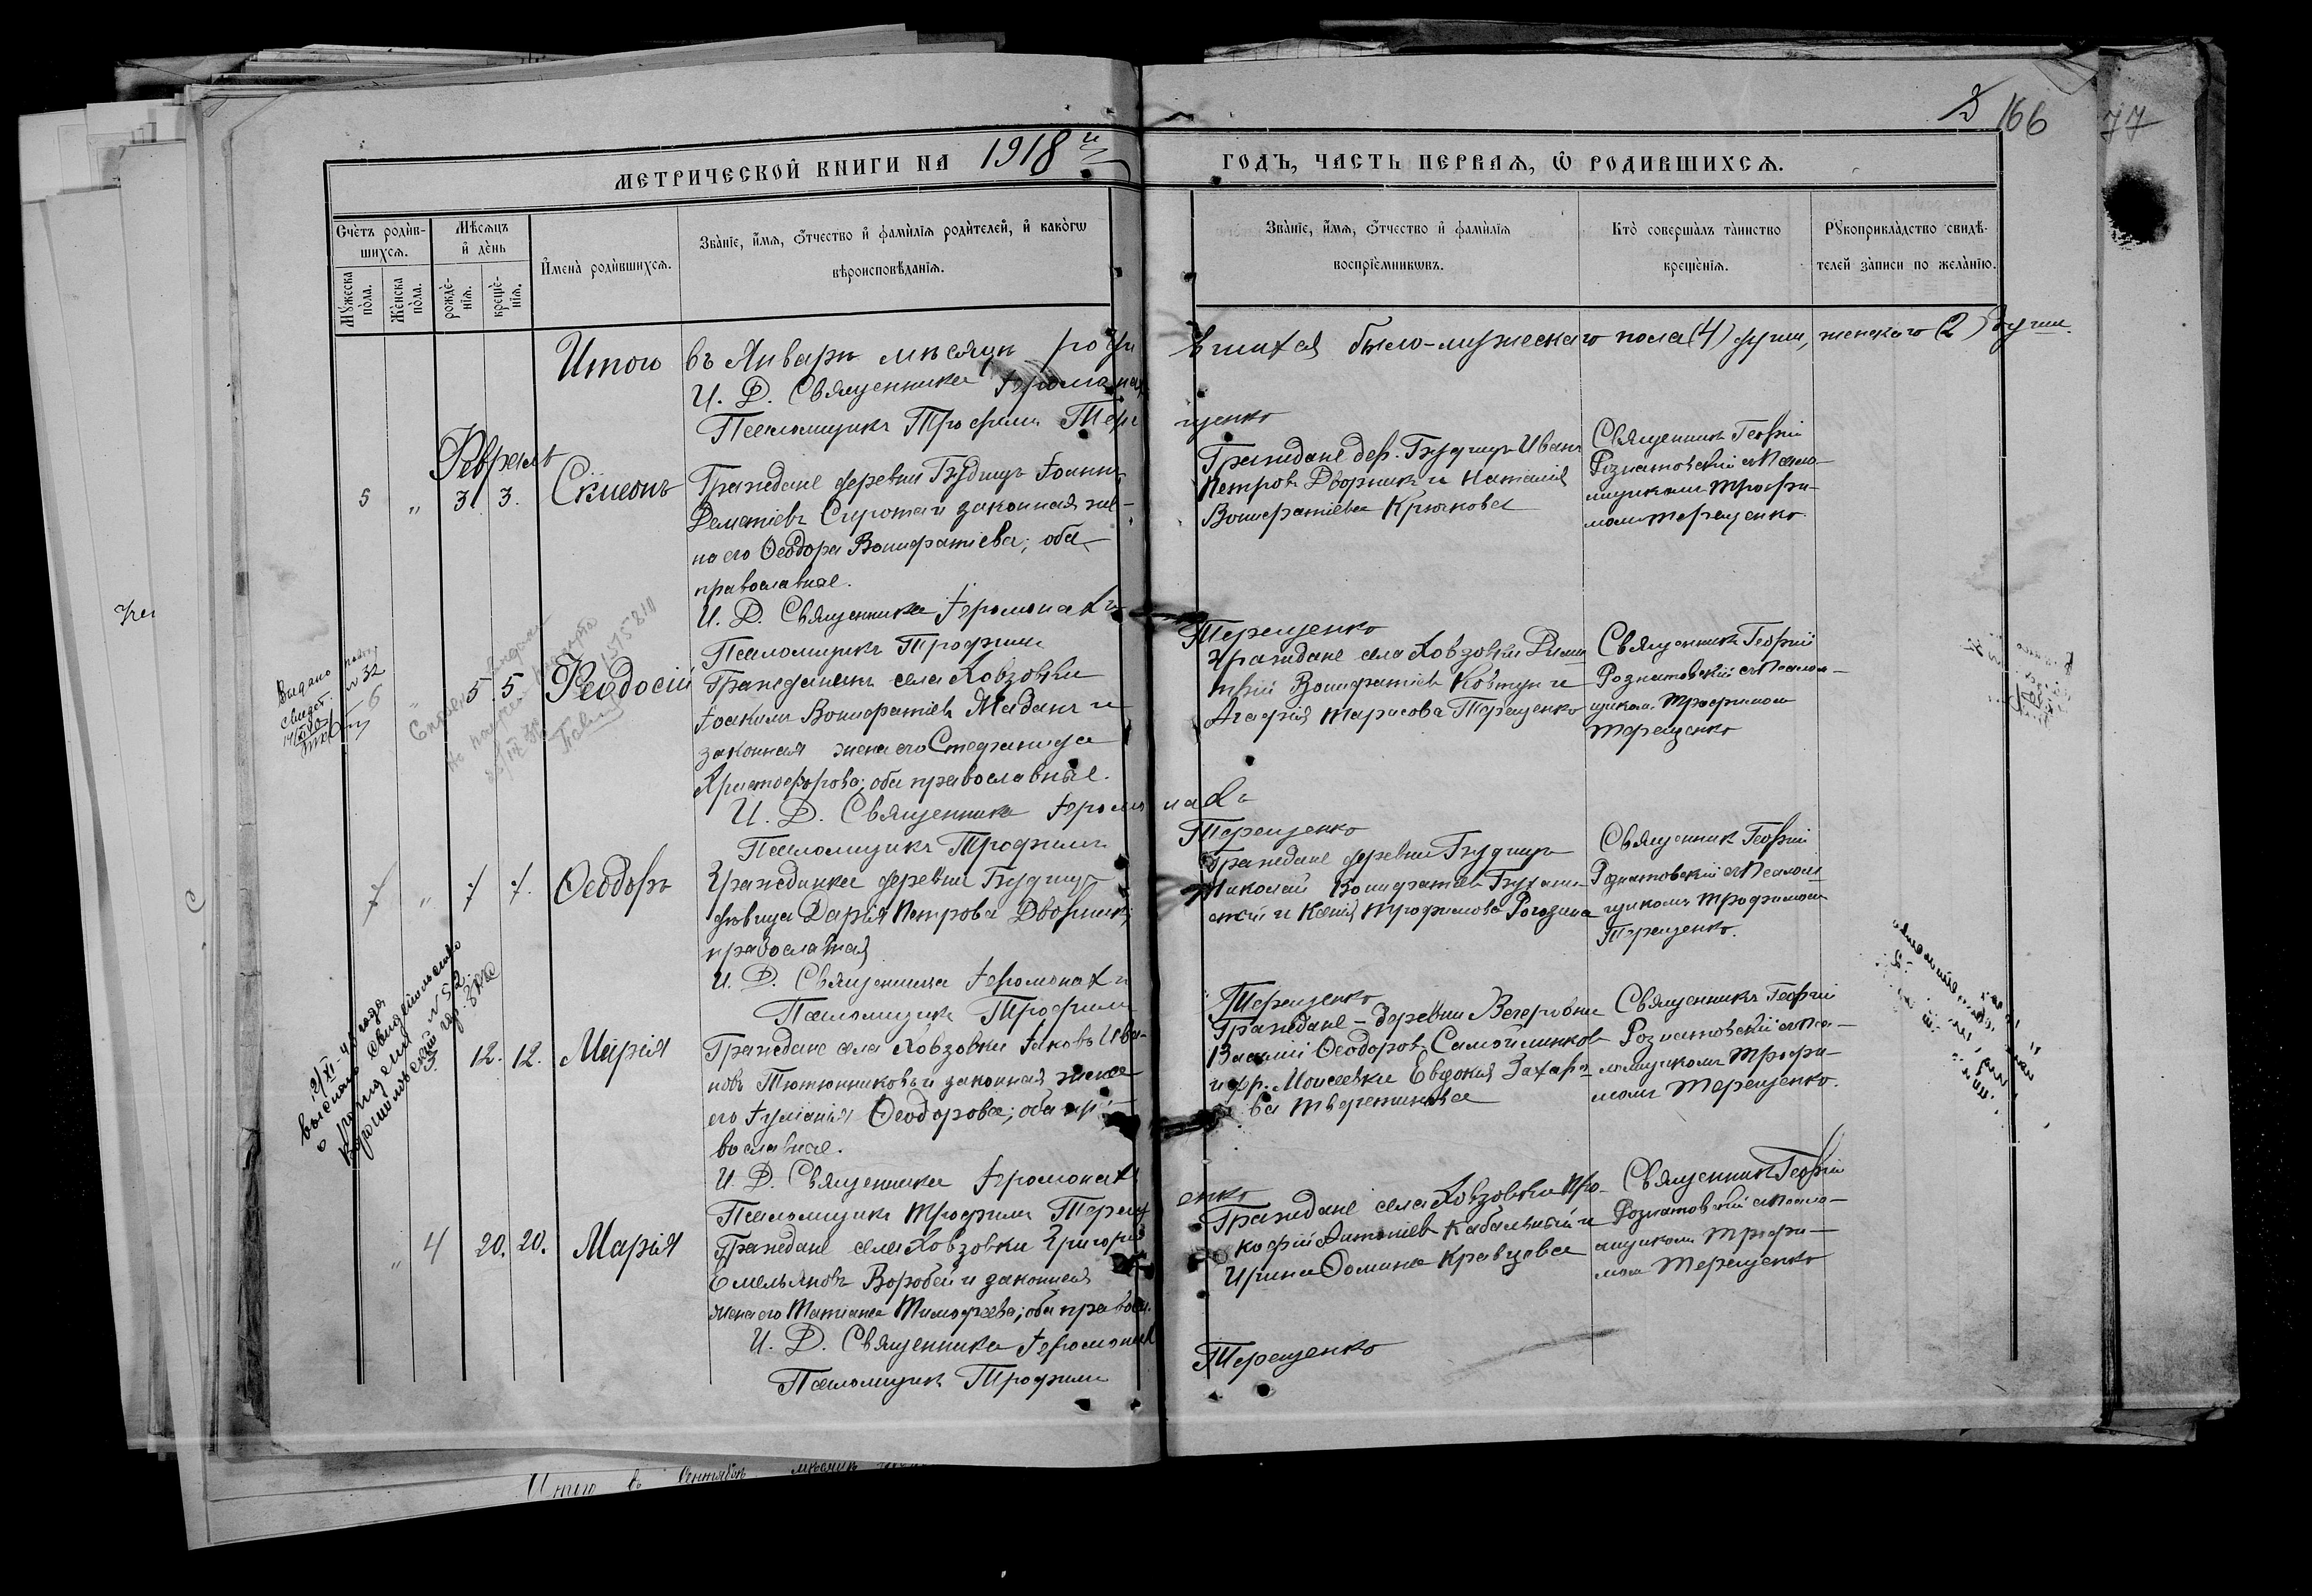 166
77
МЕТРИЧЕСКОЙ КНИГИ НА 1918й ГОДЪ, ЧАСТЬ ПЕРВАЯ, Ѡ РОДИВШИХСЯ.
Счётъ роди́в-
шихся.
Мѣсяцъ
и҆ де́нь
Имена̀ роди́вшихся.
Зва́нїе, и҆́мя, ѻ҆́тчество и҆ фами́лїя роди́телей, и҆ како́гѡ
вѣроисповѣ́данїя.
Му́жеска
по́ла.
Же́нска
по́ла.
рожде́-
нїя.
креще́-
нїя.
Зва́нїе, и҆́мя, ѻ҆́тчество и҆ фами́лїя
воспрїе́мникѡвъ.
Кто̀ соверша́лъ та́инство
креще́нїя.
Рꙋкоприкла́дство свидѣ́-
телей за́писи по жела́нїю.
Итого въ Январѣ мѣсяцѣ роди
вшихся было-мужескаго пола (4) души, женскаго (2) души.
И. Д. Священника Іеромонах
Псаломщикъ Трофимъ Тере
щенко
Февраль
5 " 3. 3. Симеонъ
Граждане деревни Будищъ Іоаннъ
Сирота и законная же-
на его Ѳеодора Вонифатіева; оба
православные.
Граждане дер. Будищъ Иванъ
Петровъ Дворникъ и Наталія
Вонифатіева Крючкова
Священникъ Георгій
Рознатовскій съ Псало-
мщикомъ Трофи-
момъ Терещенко
И. Д. Священника Іеромонахъ
Псаломщикъ Трофимъ
Терещенко
Выдано
свидет. № 32
6 " 5 5 Феодосій
Гражданинъ села Ховзовки
Іоакимъ Вонифатіевъ Маданъ и
законная жена его Стефанида
Христофорова; оба православные.
Граждане села Ховзовки Дими
трій Вонифатіев Ковтун и
Агафія Тарасова Терещенко
Священникъ Георгій
Рознатовскій съ Псалом-
щиком Трофимом
Терещенко
И. Д. Священника Іеромо нахъ
Псаломщикъ Трофимъ
Терещенко
7 " 7 7. Ѳеодоръ
Гражданка деревни Будищъ
дѣвица Дарія Петрова Дворникъ;
православная
Граждане деревни Будищъ
Николай Вонифатіев
и Ксенія Трофимова Рогозина
Священник Георгій
Рознатовскій съ Псалом
щикомъ Трофимом
Терещенко.
И. Д. Священника Іеромонахъ
Псаломщик Трофим
Терещенко
2/XI-45 года
выслано свидетельство
о рождении № 52
3 12. 12. Марія
Граждане села Ховзовки Іаковъ Ива-
новъ Тютюнниковъ и законная жена
его Іуліанія Ѳеодорова; оба пра-
вославные.
Граждане - деревни
Василій Ѳеодоров Самойленков
и Моисеевки Евдокія Захаро-
ва
Священникъ Георгій
Рознатовскій съ Пса-
ломщикомъ Трофи-
момъ Терещенко.
И. Д. Священника Іеромонах
Псаломщикъ Трофимъ Терещ
енко
" 4 20. 20. Марія
Граждане села Ховзовки Григорій
Емельяновъ Воробей и законная
жена его Татіана Тимофеева; оба правосл.
Граждане села Ховзовки Про-
кофій Антоніев Кабальный и
Ирина Домина Кравцова
Священник Георгій
Рознатовскій с Псало-
мщиком Трофи-
мом Терещенко
И. Д. Священника Іеромонах
Псаломщик Трофим
Терещенко